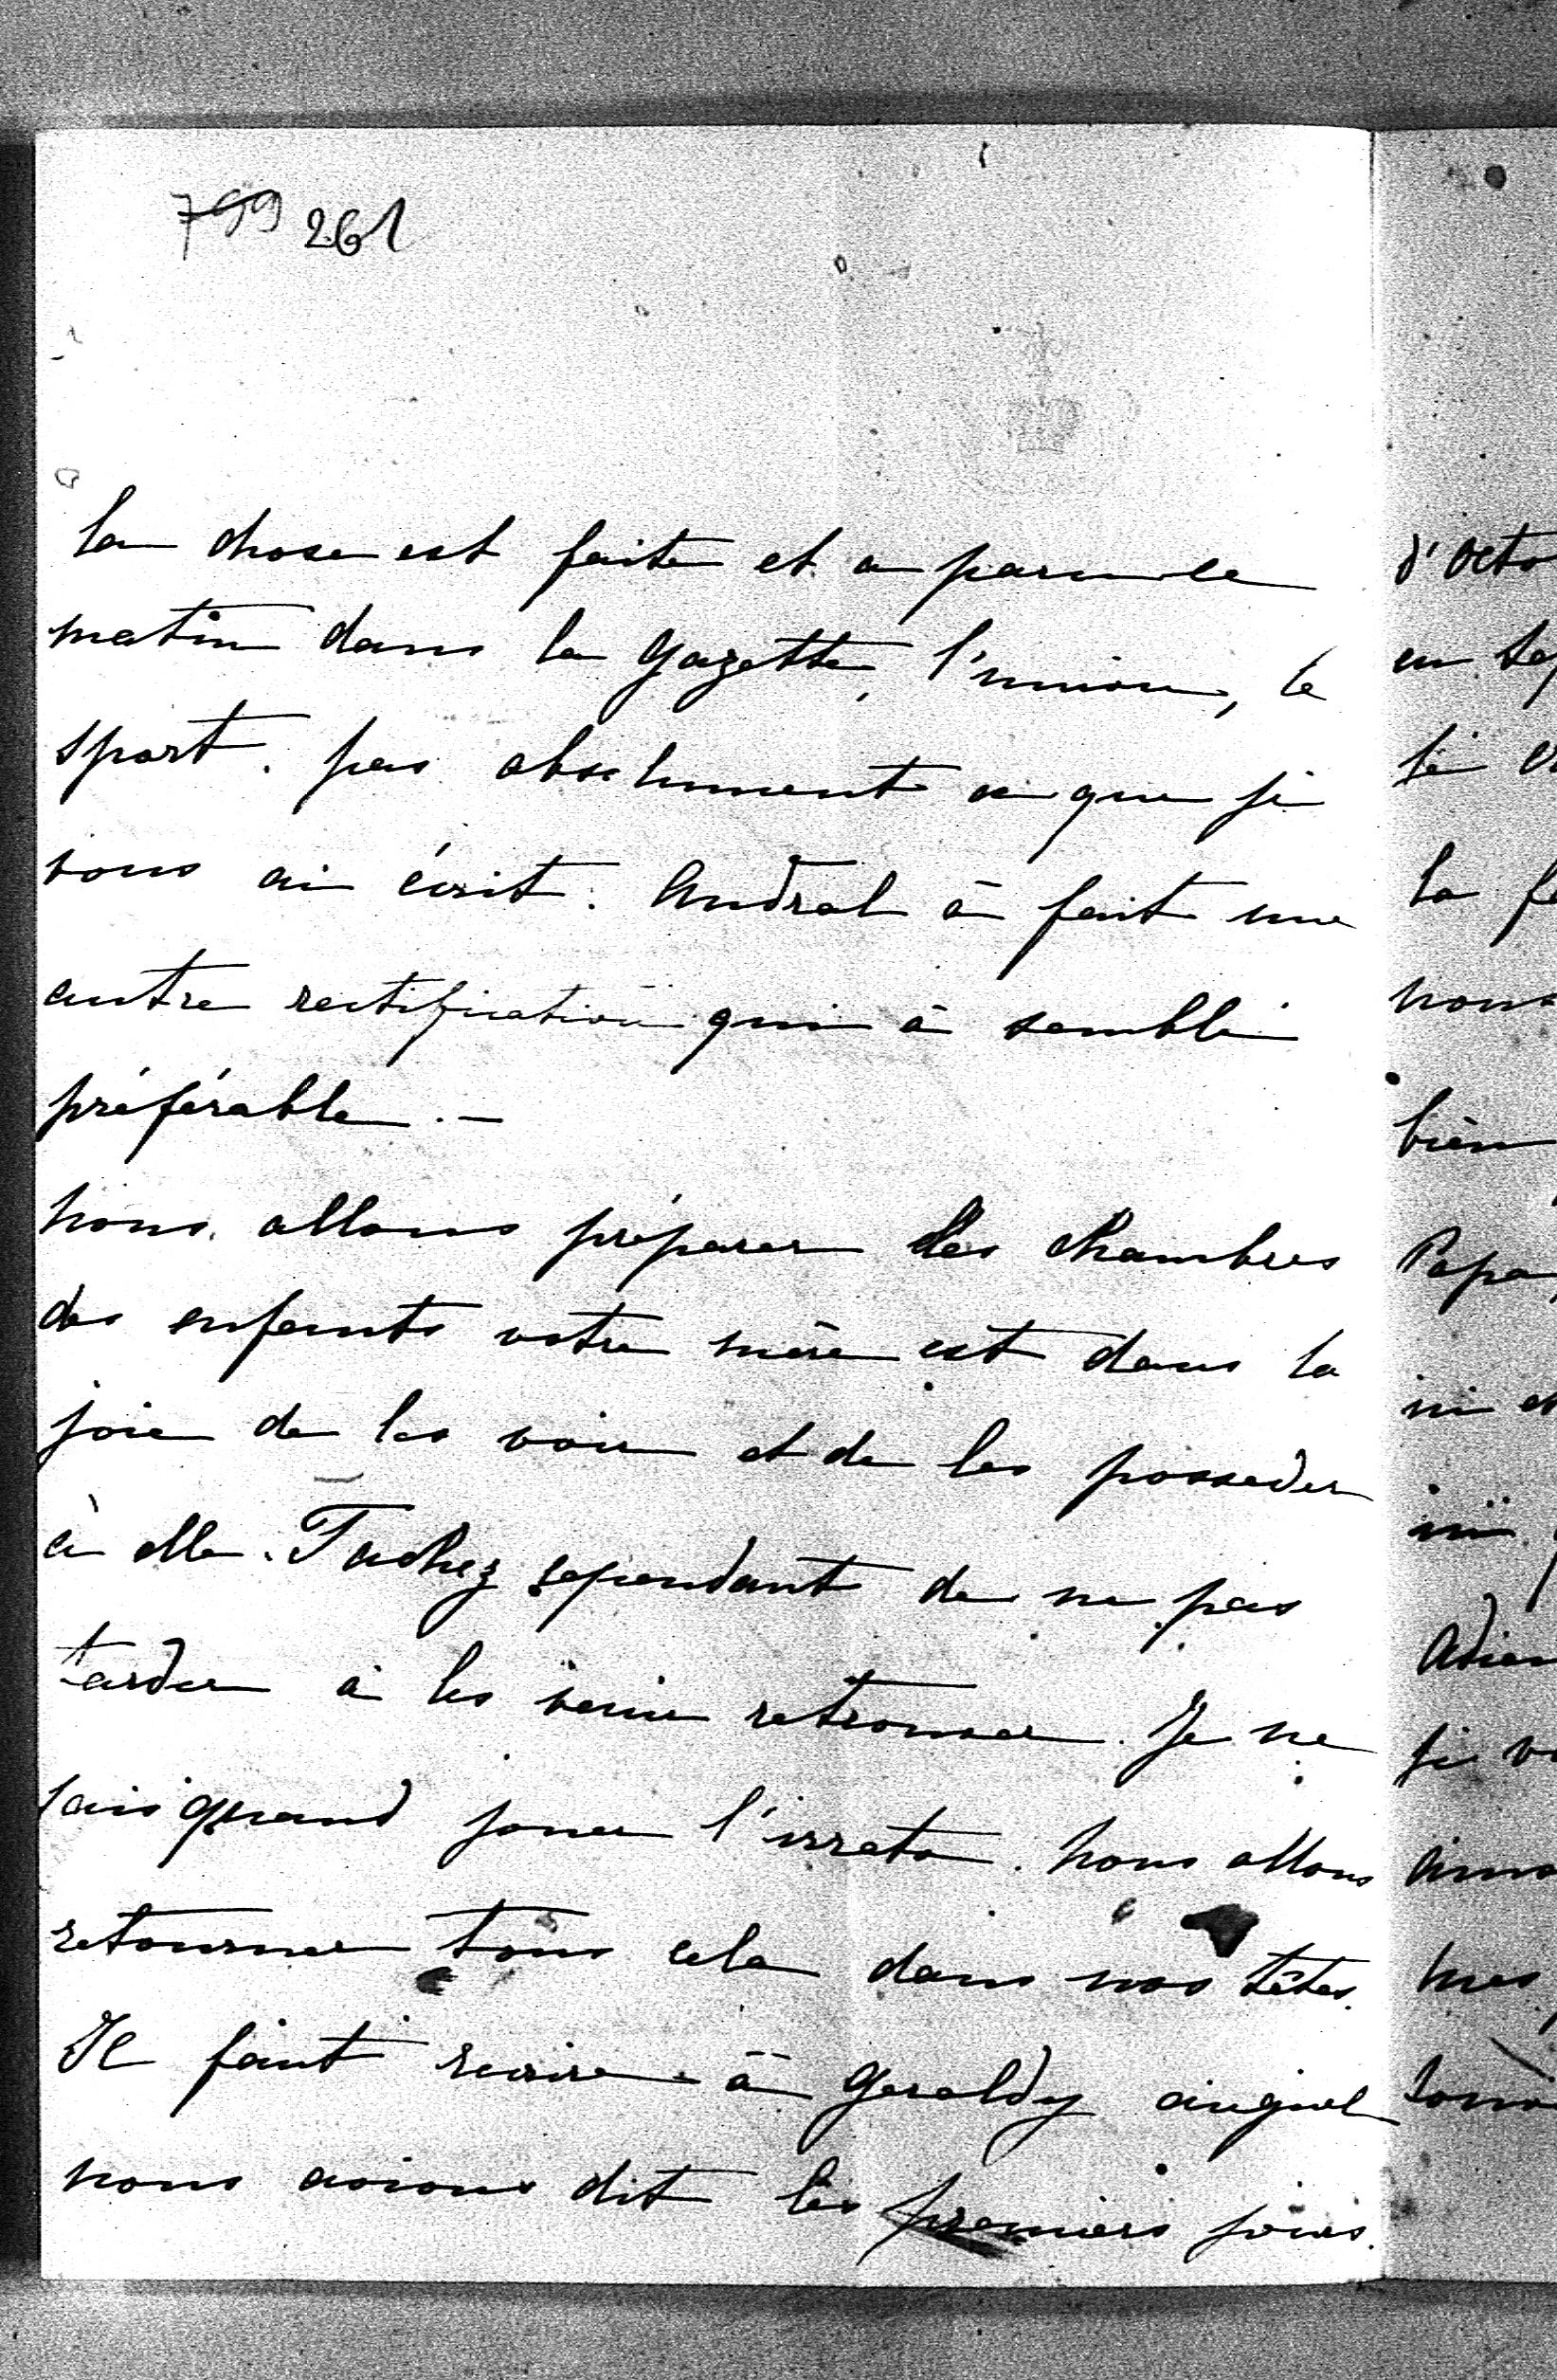 799 261
la chose est faite et a paru ce
matin dans la Gazette, l'union, le
sport. pas absolument ce que je
vous ai écrit. Andral à fait une
autre rectification qui à semblé
préférable. —
Nous allons préparer les chambres
des enfants votre mère est dans la
joie de les voir et de les posseder
à elle. Tachez cependant de ne pas
tarder à les venir retrouver. Je ne
sais quand jouer l'irrato. Nous allons
retourner tous cela dans nos têtes.
Il faut écrire à Geraldy auquel
nous avions dit les premiers jours.
d'octo
en sep
la f
nous
bien
Papa
ni
Adieu
je v
aima
mes